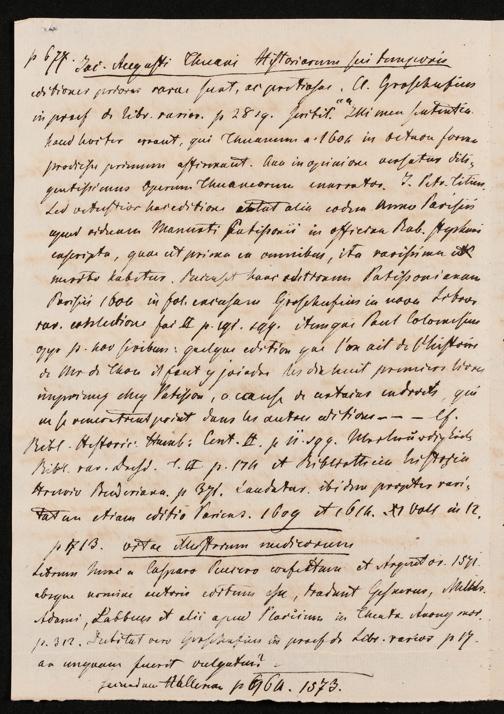 p 677. Jac. Augusti Thuani Historiarum sui temporis
editiones priores rarae sunt, ac pretiosae. Cl. Groschufius
in praef. de libr. rarior. p 28 sq. scribit. "Ex mea sententia
haud leviter errant, qui Thuanum a. 1604 in octava forma
prodiisse primum affirmant. Qua in opinione versatur dili-
gentissimus operum Thuaneorum enarrator J. Petr. Titius.
Sed vetustior hac editione extat alia eodem anno Parisiis
apud viduam Mamerti Patissonii in officina Rob. Stephani
excripta, quae ut prima ex omnibus, ita rarissima
merito habetur. Recenset hanc editionem Patissonianam
Parisiis 1604 in fol. excusam Groschufius in nova libror.
rar. collectione fas. II p. 191. sqq. itemque Paul Colomesius
opp p. scribens: quelque edition que l'on ait de l'histoire
de Mr de Thou il faut y joindre les dix huit premiers livres
imprimez chez Patisson, a cause de certains endroits, qui
ne se rencontrent point dans les autres editions — — — cf.
Bibl. Historic. Hamb. Cent. II. p 11. sqq. Merkwürdigkeit
Bibl. rar. Dresd. T. II p. 174 et Bibliothecam historicam
Struvio Buderianam. p 371. Laudatur ibidem propter rari-
tatem etiam editio Pariens. 1609 et 1614. XI Voll in 12.
p 713. vitae illustrium medicorum
Librum a Casparo Peucero confectum et Argent. 1571.
absque nomine autoris editum esse, tradunt Gesnerus, Melch.
Adami, Labbeus et alii apud Placcium in Theatr. Anonymor.
p. 312. Dubitat vero Groschufius in praef. de libr. rarior. p 17.
an unquam fuerit vulgatus?
secundum Hallerum p 964. 1573.